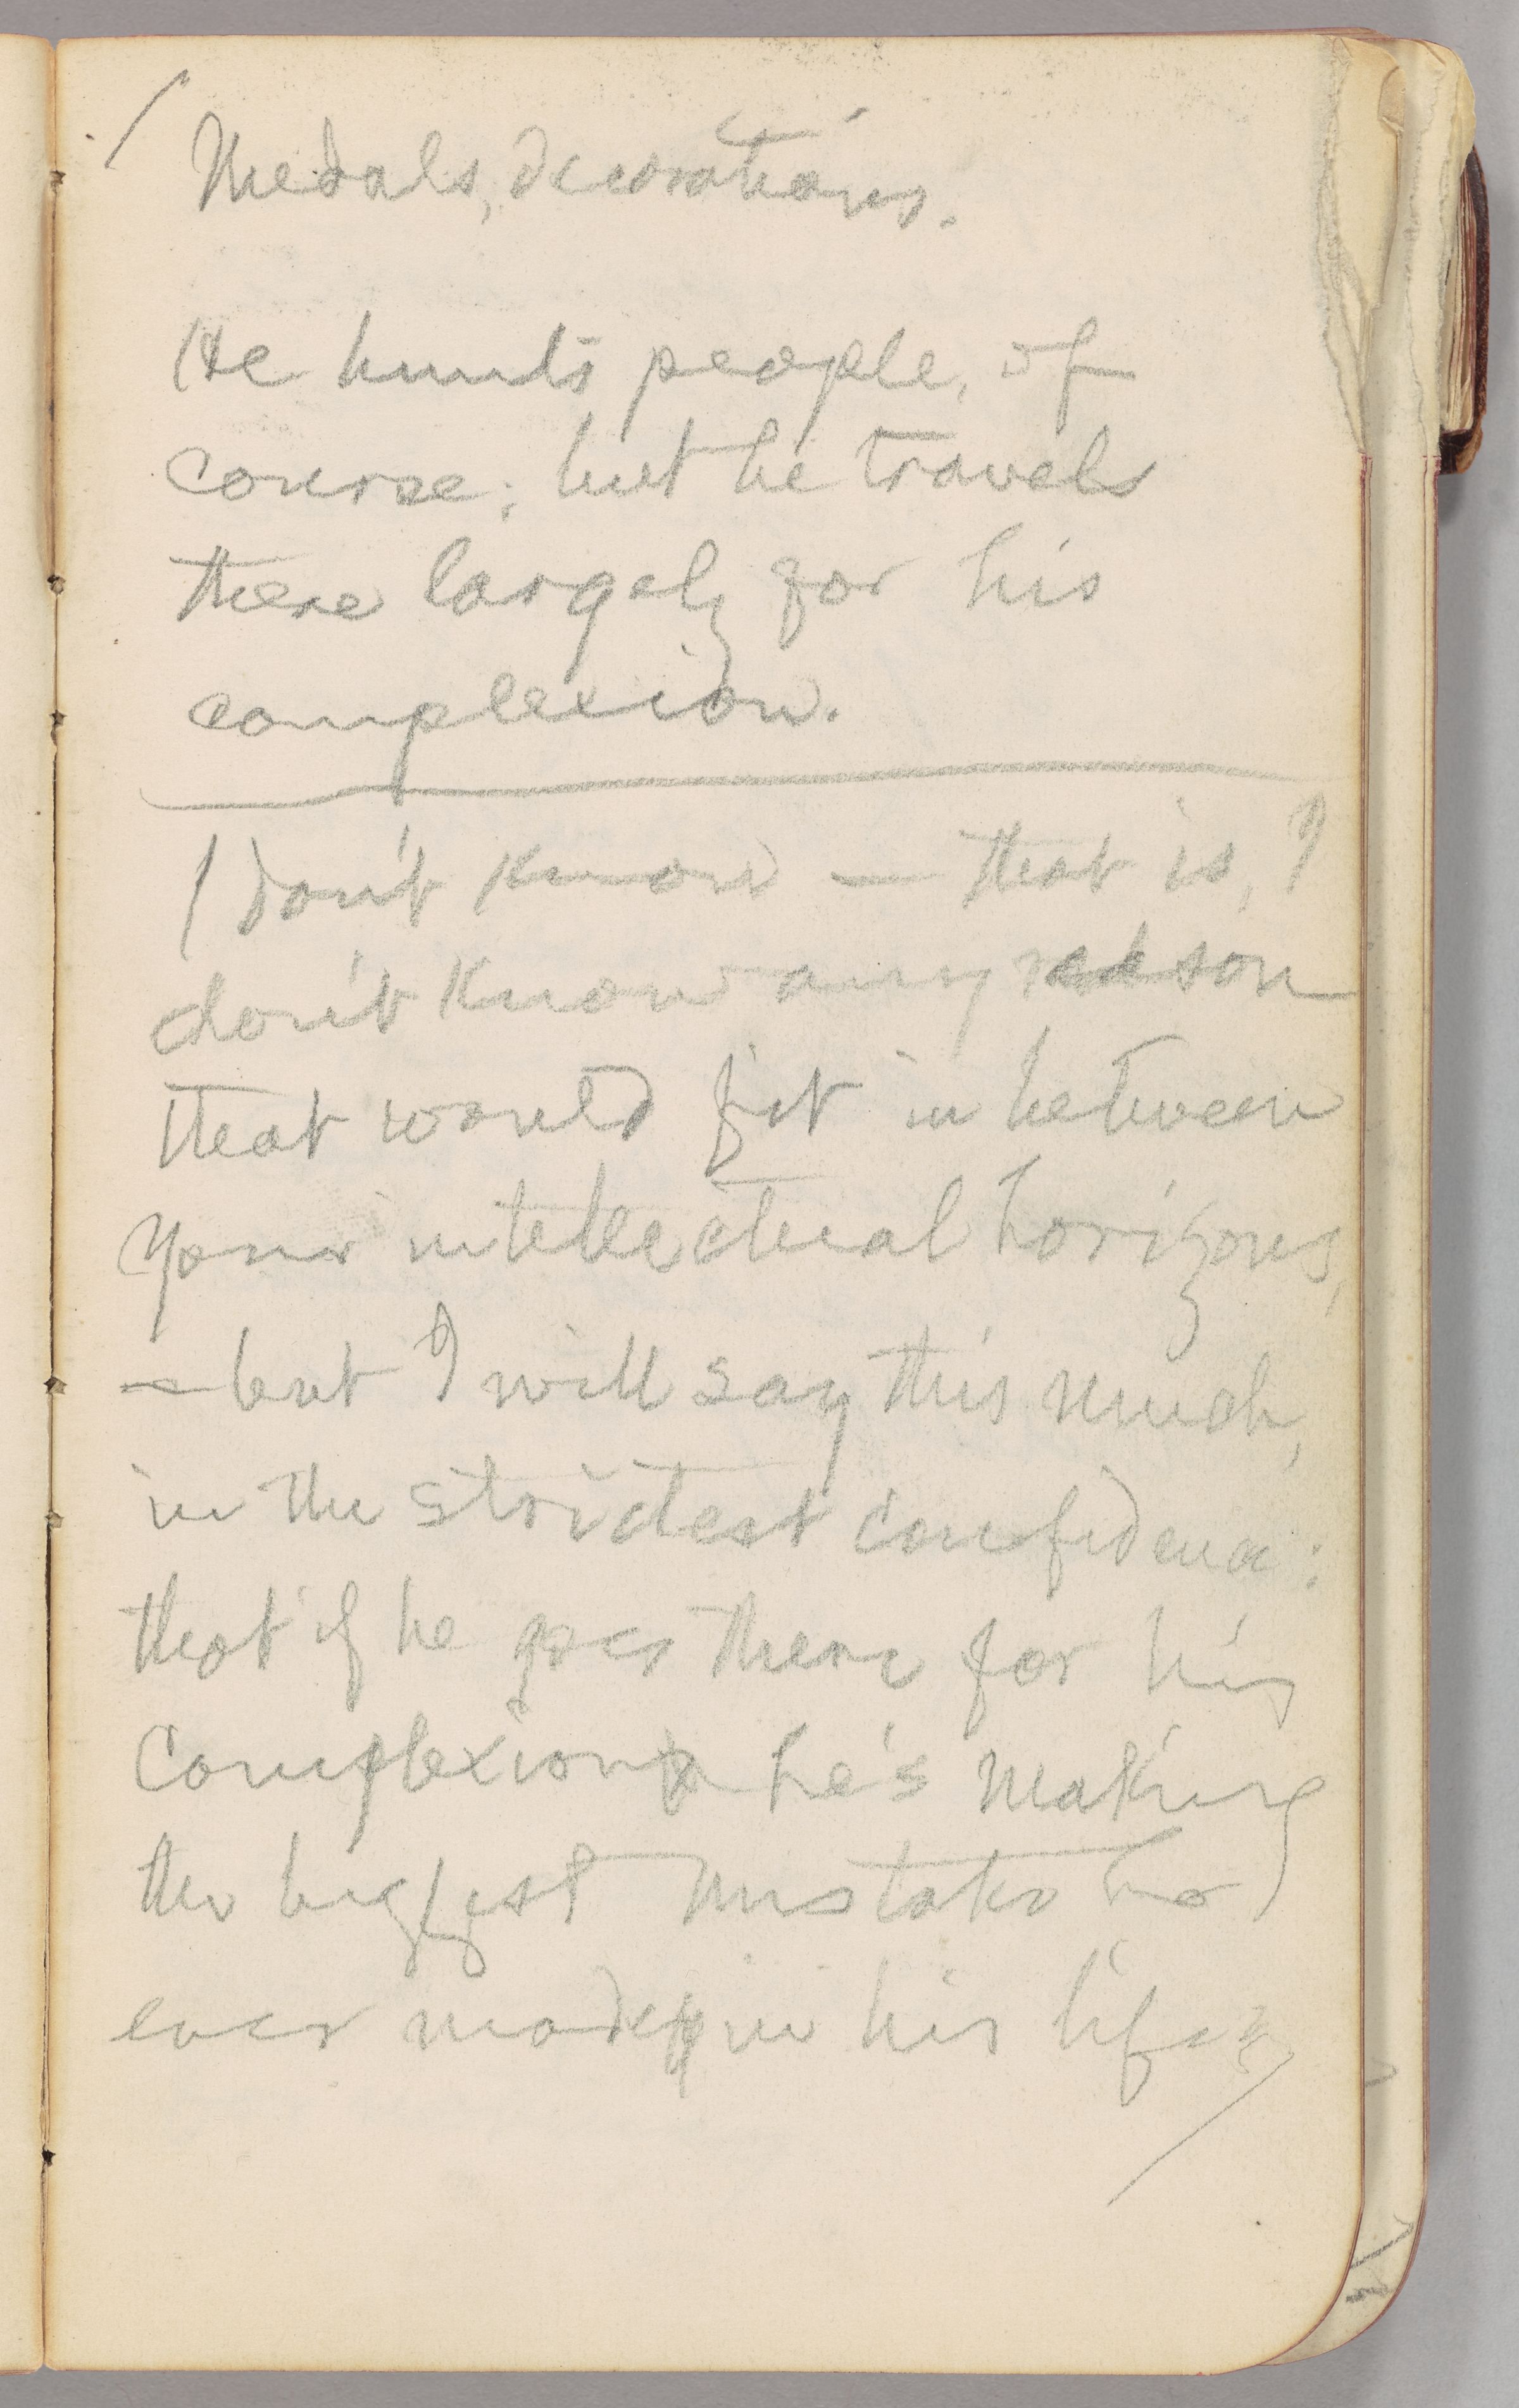 Medals, decorations.
He hunts people, of
course; but he travels
there largely for his
complexion.
I don't know — that is, I
don't know any reason
that would fit in between
your intellectual horizons,
— but I will say this much,
in the strictest confidence:
that if he goes there for his
complexion he's making
the biggest mistake he
ever made in his life.